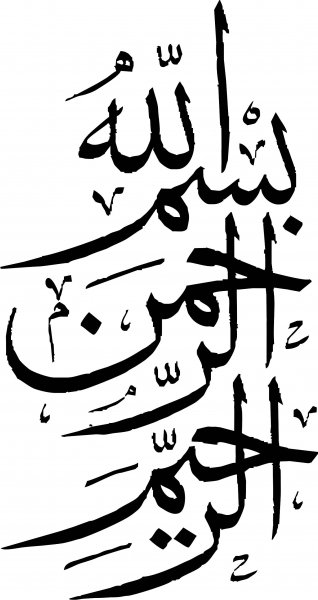 بِسْمِ اللّٰهِ
الرَّحْمٰنِ
الرَّحِيمِ